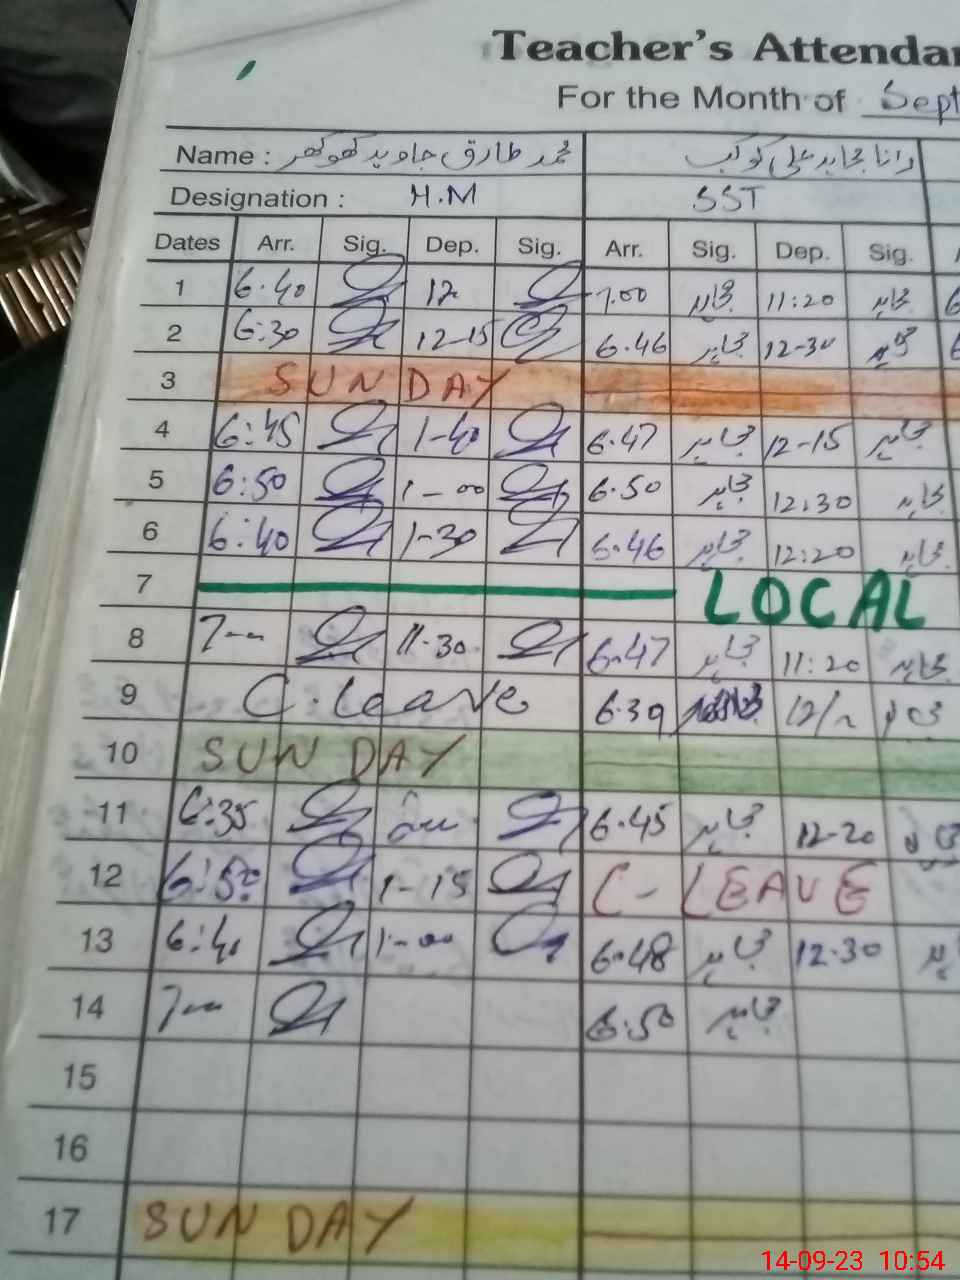 Teacher's Attendan
For the Month of Sept
Name : محمد طارق جاوید کھوکھر رانا مجاہد علی کوکب
Designation : H.M SST
Dates Arr. Sig. Dep. Sig. Arr. Sig. Dep. Sig.
1 6.40 12 7.00 مجاہد 11:20 مجاہد
2 6:30 12-15 6.46 مجاہد 12-30 مجاہد
3 SUNDAY
4 6:45 1-40 6.47 مجاہد 12-15 مجاہد
5 6:50 1-00 6.50 مجاہد 12:30 مجاہد
6 6:40 1-30 6.46 مجاہد 12:20 مجاہد
7 LOCAL
8 7-- 11.30 6.47 مجاہد 11:20 مجاہد
9 C. Leave 6.39
10 SUNDAY
11 6:35 6.45 مجاہد 12-20
12 6:50 1-15 C-LEAVE
13 6:40 1-00 6.48 مجاہد 12.30
14 7-- 6.50 مجاہد
15
16
17 SUNDAY
14-09-23 10:54